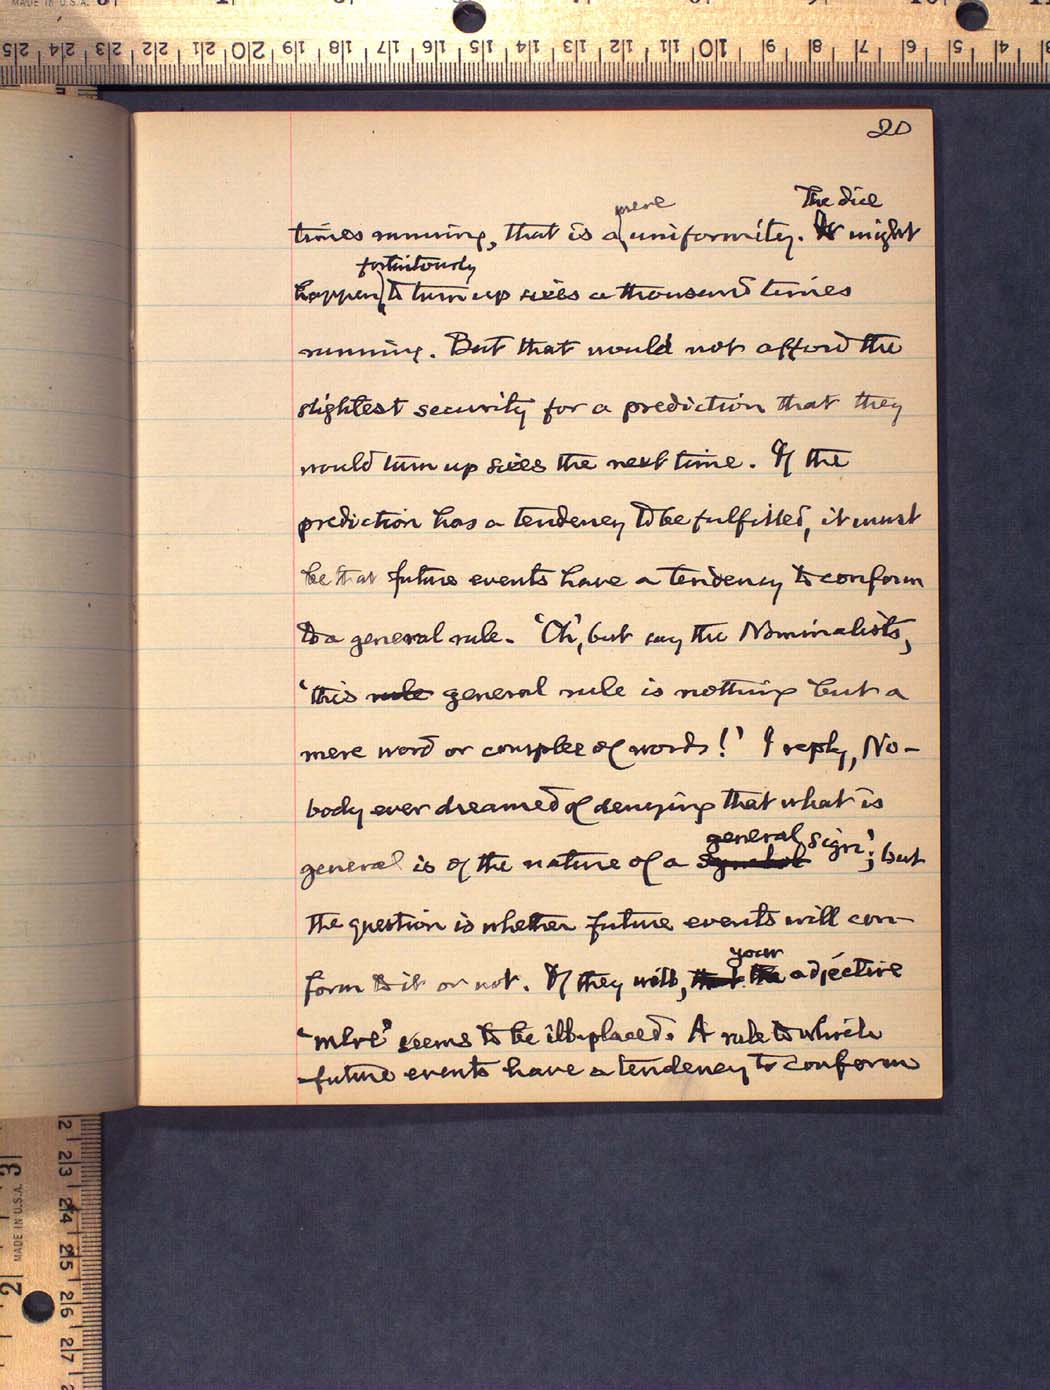 20
times running, that is a mere uniformity. The dice might
happen fortuitously to turn up sixes a thousand times
running. But that would not afford the
slightest security for a prediction that they
would turn up sixes the next time. If the
prediction has a tendency to be fulfilled, it must
be that future events have a tendency to conform
to a general rule. 'Oh', but say the Nominalists,
'this rule general rule is nothing but a
mere word or couplee of words!' I reply, No-
body ever dreamed of denying that what is
general is of the nature of a symbol general sign; but
the question is whether future events will con-
form to it or not. If they will, that the your adjective
'mere' seems to be ill-placed. A rule to which
future events have a tendency to conform
MADE IN U.S.A.
25 24 23 22 21 20 19 18 17 16 15 14 13 12 11 10 9 8 7 6 5 4 3
MADE IN U.S.A.
3 2
23 24 25 26 27